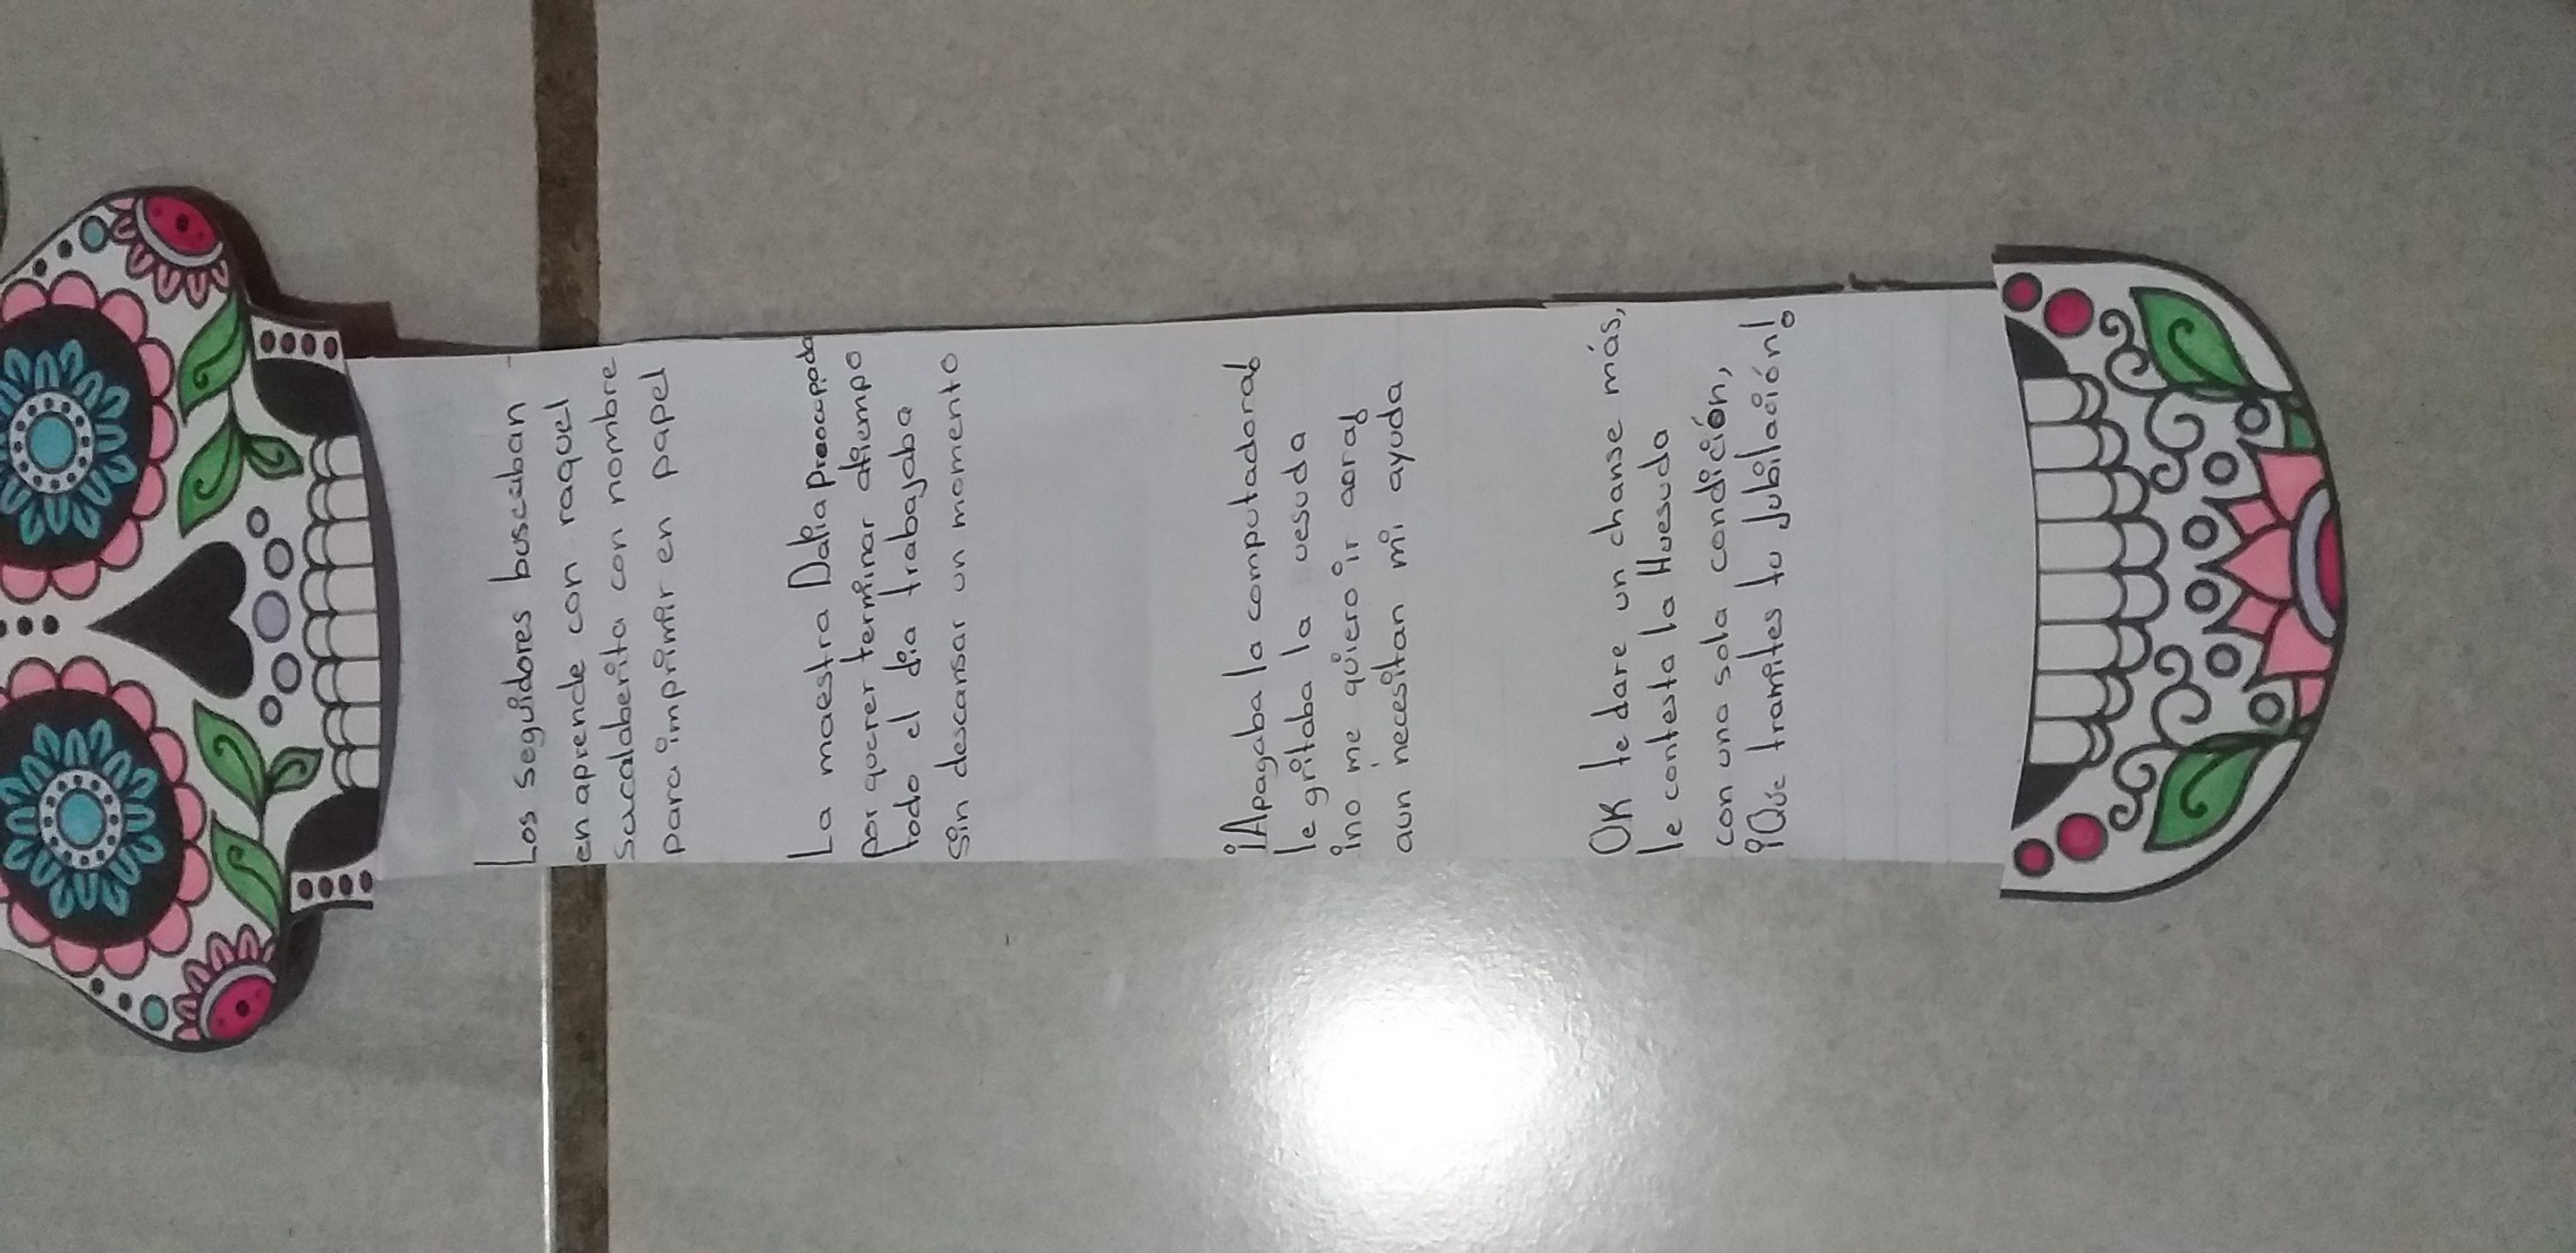 Los seguidores buscaban
en aprende con raquel
su calaberita con nombre
para imprimir en papel
La maestra Dalia preocupada
por querer terminar atiempo
todo el dia trabajaba
sin descansar un momento
¡Apagaba la computadora!
le gritaba la uesuda
¡no me quiero ir aora!
aun necesitan mi ayuda
OK te dare un chanse más,
le contesta la Huesuda
con una sola condición,
¡Que tramites tu jubilación!